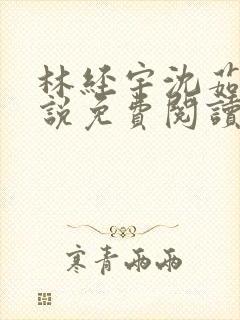 林經宇沈茹
說免費閱讀
寒青雨雨